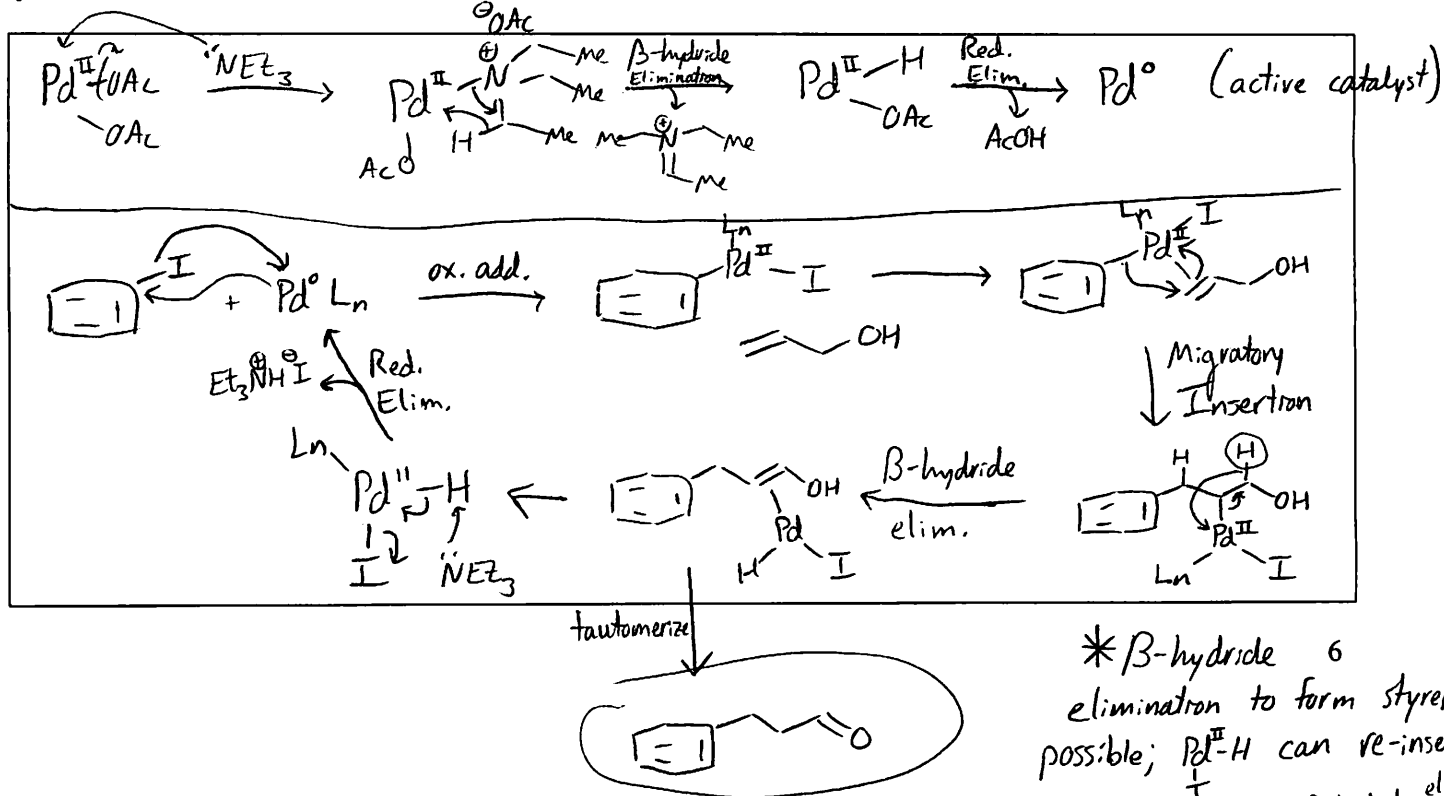 ⊖OAc
Pd^II OAc
OAc
N̈Et₃
Pd^II N⊕ Me
Me
H Me
AcO
β-hydride
Elimination
Me N⊕ Me
Me
Pd^II H
OAc
Red.
Elim.
AcOH
Pd° (active catalyst)
I + Pd° Ln
ox. add.
Ln
Pd^II I
OH
Ln
Pd^II I
OH
Migratory
Insertion
H H
OH
Pd^II
Ln I
β-hydride
elim.
OH
Pd
H I
Ln
Pd^II H
I N̈Et₃
Et₃N⊕H I⊖
Red.
Elim.
tautomerize
O
* β-hydride 6
elimination to form
possible; Pd^II-H can
I